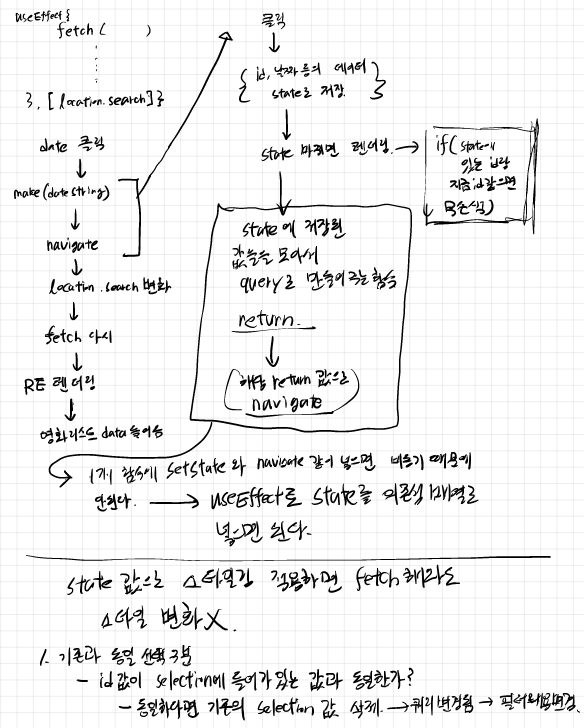 useEffect {
fetch (        )
}, [location.search]}
date 클릭
make(date string)
navigate
location.search 변화
fetch 다시
RE 렌더링
영화리스트 data 들어옴
클릭
id, 날짜 등의 데이터
state로 저장.
state 바뀌면 렌더링.
if( state에
있는 id랑
지금 id 같으면
state에 저장된
값들을 모아서
query로 만들어주는 함수
return.
(해당 return 값으로
navigate)
1개 함수에 setState와 navigate 같이 넣으면 비동기 때문에
안된다. → useEffect로 state를 의존성 배열로
넣으면 된다.
state 값으로 스타일링 적용하면 fetch 해와도
스타일 변화 X.
1. 기존과 동일 선택 구분
- id값이 selection에 들어가 있는 값과 동일한가?
- 동일하다면 기존의 selection 값 삭제. → 쿼리 변경됨 →